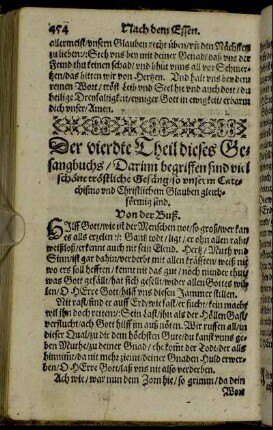 454 Nach dem Essen.
allermeist/unsern Glauben recht üben/vñ den Nächsten
zu lieben/:Steh uns bey mit deiner Genad/daß uns der
Feind thu keinen schad/und bhüt uns all vor Schmer-
tzen/das bitten wir von Hertzen. Und halt uns bey dem
reinen Wort/tröst Leib und Seel hie und auch dort/du
heilige Dreyfaltigkeit/einiger Gott in ewigkeit/erbarm
dich unser/Amen.
Der vierdte Theil dieses Ge-
sangbuchs/Darinn begriffen sind viel
schöne tröstliche Gesäng/so unserm Cate-
chismo und Christlichem Glauben gleich-
förmig sind.
Von der Buß.
HIlff Gott/wie ist der Menschen not/so groß/wer kan
es alls erzelen:/: Gantz tod/ligt/er ohn allen raht/
weißloß/erkennt auch nit sein Elend. Hertz/Muth und
Sinn/ist gar dahin/verderbt mit allen kräfften/weiß nit
wo ers soll hefften/kennt nit das gut/noch minder thut/
was Gott gefällt/hat sich gestellt/wider allen Gottes wil-
len/O HErre Gott hilff uns diesen Jammer stillen.
Nit rast/sind er auff Erd/wie fast er sucht/kein macht
wil ihn doch retten:/: Sein last/ihn als der Höllen Gast/
verflucht/ach Gott hilff im auß nöten. Wir ruffen all/in
dieser Qual/zu dir dem höchsten Gute/du kanst uns ge-
ben Muthe/zu deiner Gnad/ehe komt der Tod/der alls
hinnimt/da nit mehr zimt/deiner Gnaden Huld erwer-
ben/O HErre Gott/laß uns nit also verderben.
Ach wie/war nun dem Zorn hie/so grimm/da dein
Wort